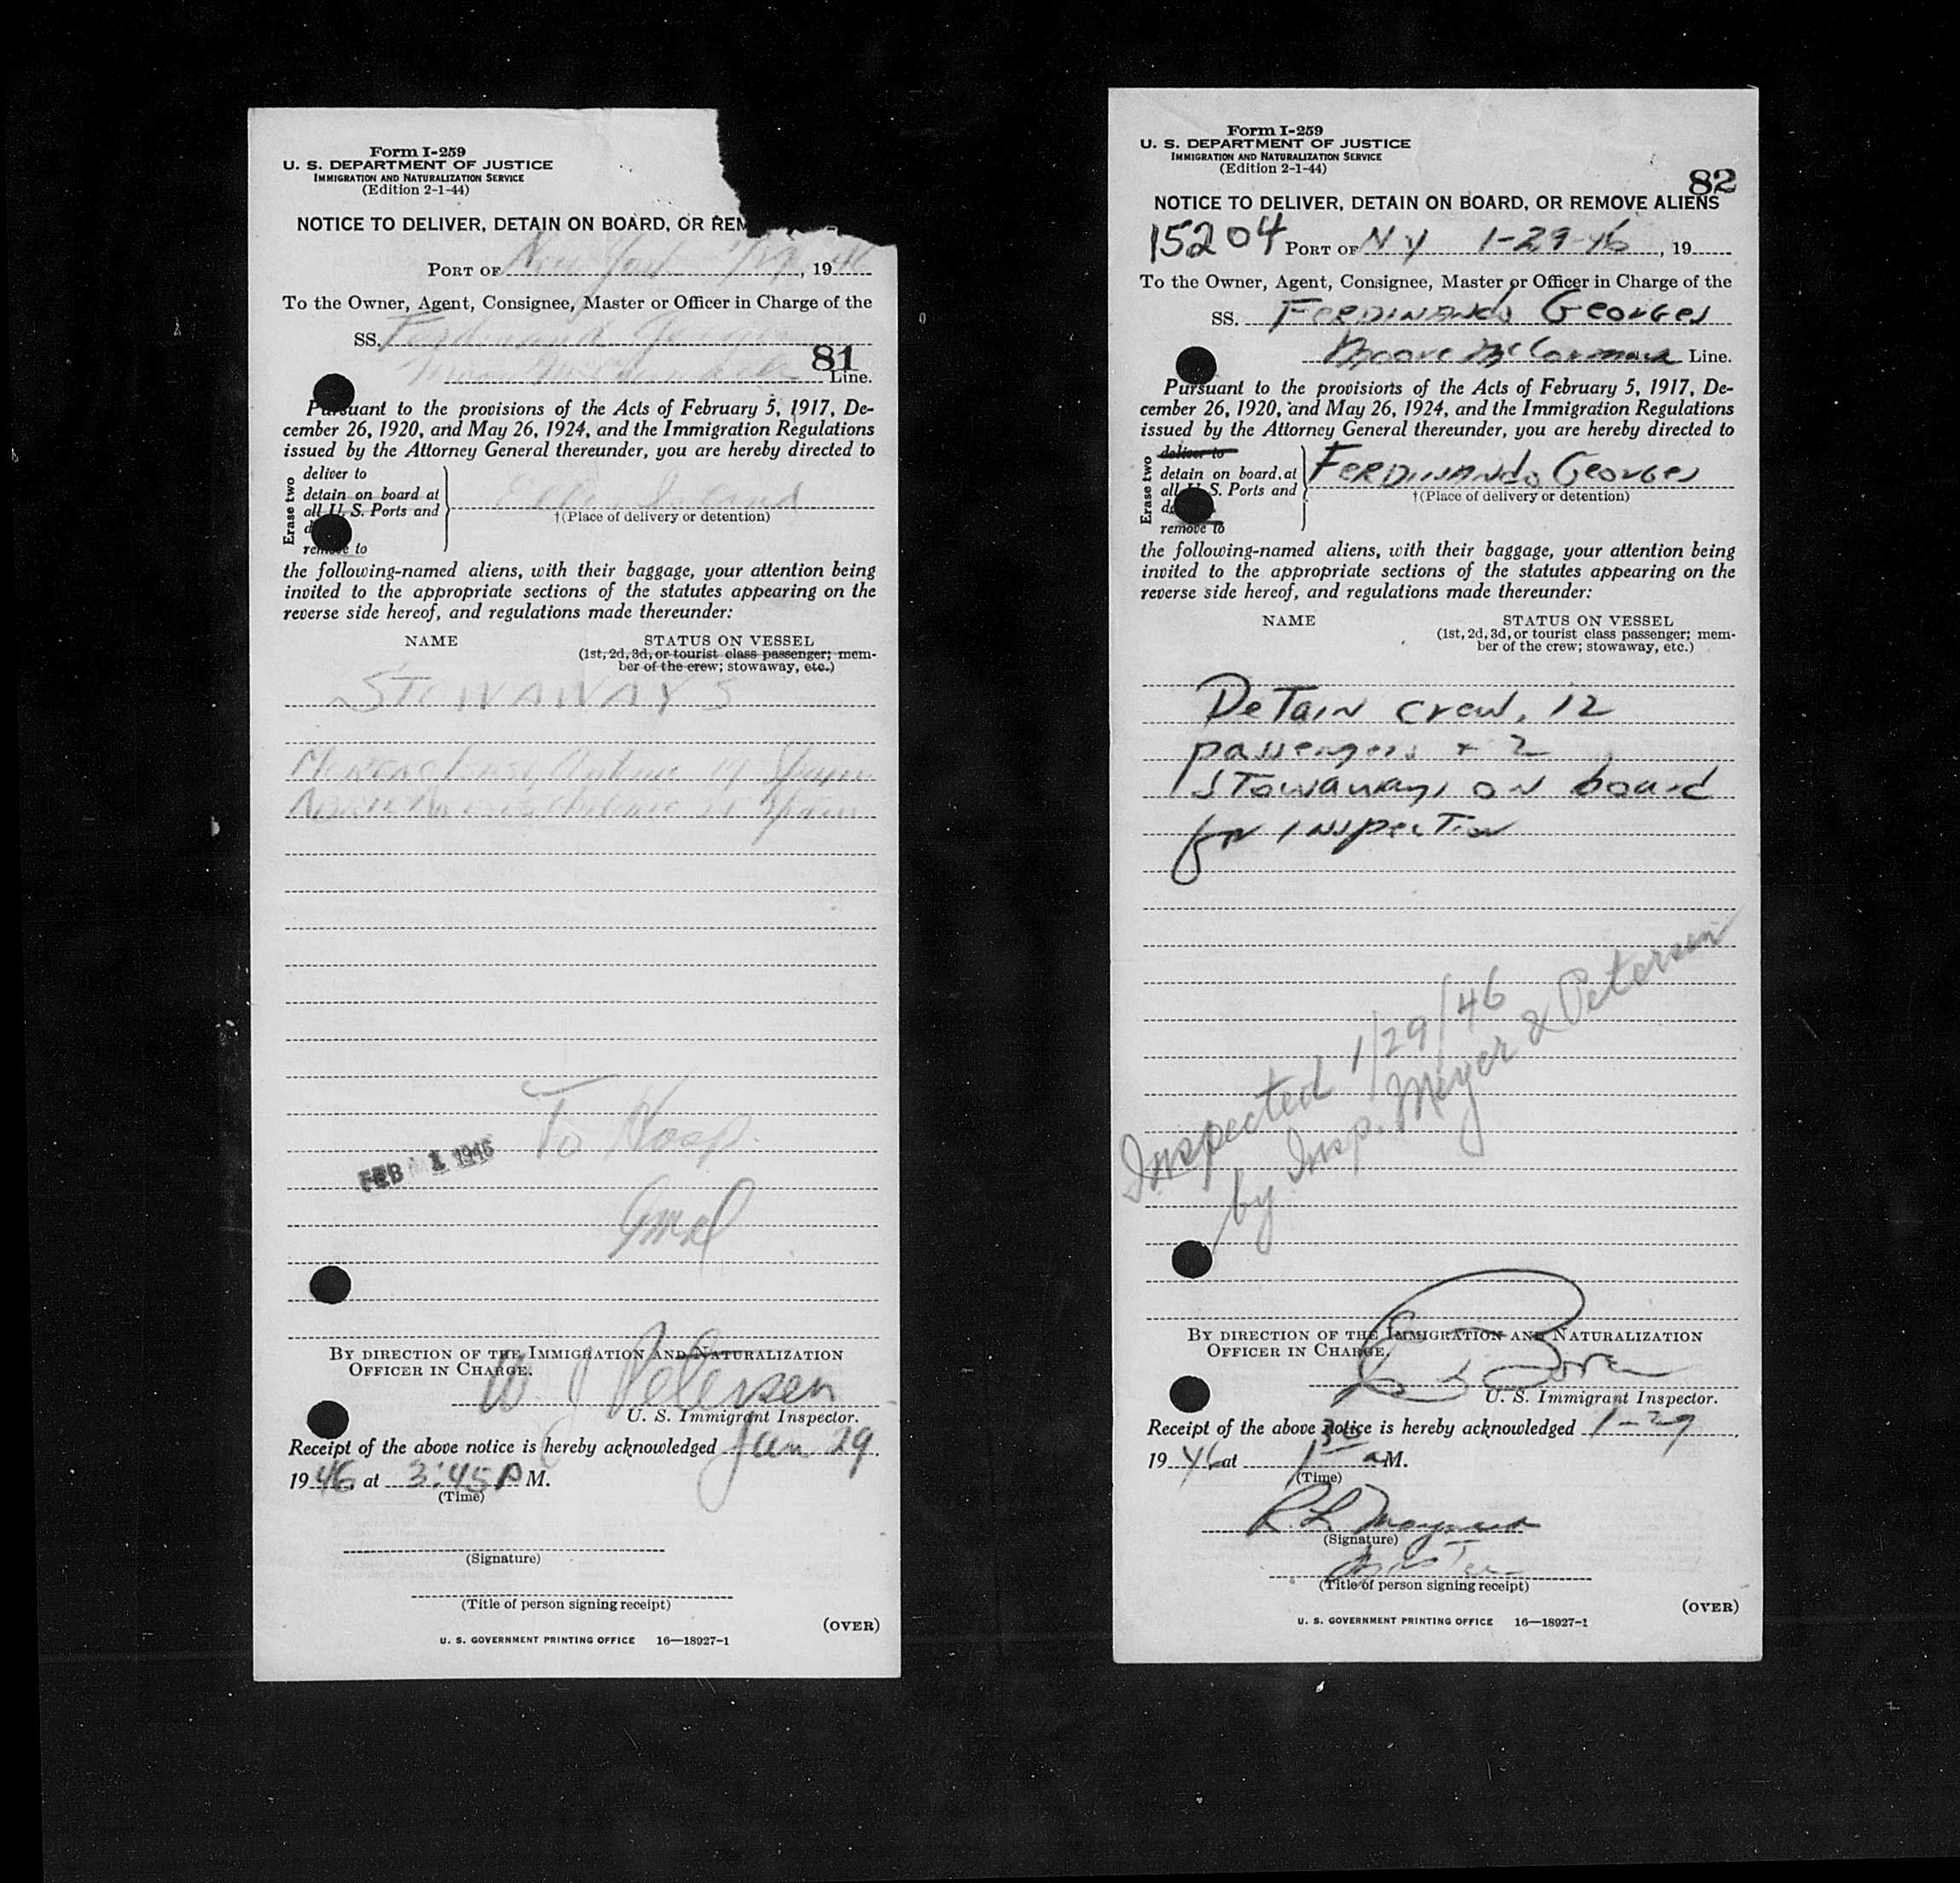 Form I-259
U. S. DEPARTMENT OF JUSTICE
IMMIGRATION AND NATURALIZATION SERVICE
(Edition 2-1-44)
NOTICE TO DELIVER, DETAIN ON BOARD, OR REM
PORT OF New York 1/29, 1946
To the Owner, Agent, Consignee, Master or Officer in Charge of the
SS. Ferdinand
81
Line.
Pursuant to the provisions of the Acts of February 5, 1917, De-
cember 26, 1920, and May 26, 1924, and the Immigration Regulations
issued by the Attorney General thereunder, you are hereby directed to
Erase two
deliver to
detain on board at
all U. S. Ports and
d
remove to
Ellis Island
†(Place of delivery or detention)
the following-named aliens, with their baggage, your attention being
invited to the appropriate sections of the statutes appearing on the
reverse side hereof, and regulations made thereunder:
NAME STATUS ON VESSEL
(1st, 2d, 3d, or tourist class passenger; mem-
ber of the crew; stowaway, etc.)
STOWAWAYS
Antonio 19 Spain
Spain
To Hosp.
FEB 1 1946
BY DIRECTION OF THE IMMIGRATION AND NATURALIZATION
OFFICER IN CHARGE.
W. J Petersen
U. S. Immigrant Inspector.
Receipt of the above notice is hereby acknowledged Jan. 29,
1946, at 3:45 P M.
(Time)
(Signature)
(Title of person signing receipt)
(OVER)
U. S. GOVERNMENT PRINTING OFFICE 16—18927-1
Form I-259
U. S. DEPARTMENT OF JUSTICE
IMMIGRATION AND NATURALIZATION SERVICE
(Edition 2-1-44)
82
NOTICE TO DELIVER, DETAIN ON BOARD, OR REMOVE ALIENS
15204 PORT OF N Y 1-29-46, 19
To the Owner, Agent, Consignee, Master or Officer in Charge of the
SS. FERDINANDO Georges
Moore McCormack Line.
Pursuant to the provisions of the Acts of February 5, 1917, De-
cember 26, 1920, and May 26, 1924, and the Immigration Regulations
issued by the Attorney General thereunder, you are hereby directed to
Erase two
deliver to
detain on board at
all U. S. Ports and
de
remove to
FERDINANDO Georges
†(Place of delivery or detention)
the following-named aliens, with their baggage, your attention being
invited to the appropriate sections of the statutes appearing on the
reverse side hereof, and regulations made thereunder:
NAME STATUS ON VESSEL
(1st, 2d, 3d, or tourist class passenger; mem-
ber of the crew; stowaway, etc.)
DeTain crew, 12
passengers + 2
STowaways on board
for inspecTion
Inspected 1/29/46
by Insp. Meyer & Petersen
BY DIRECTION OF THE IMMIGRATION AND NATURALIZATION
OFFICER IN CHARGE.
U. S. Immigrant Inspector.
Receipt of the above notice is hereby acknowledged 1-29,
1946 at 1 30 a M.
(Time)
R. L Maynard
(Signature)
Master
(Title of person signing receipt)
(OVER)
U. S. GOVERNMENT PRINTING OFFICE 16—18927-1